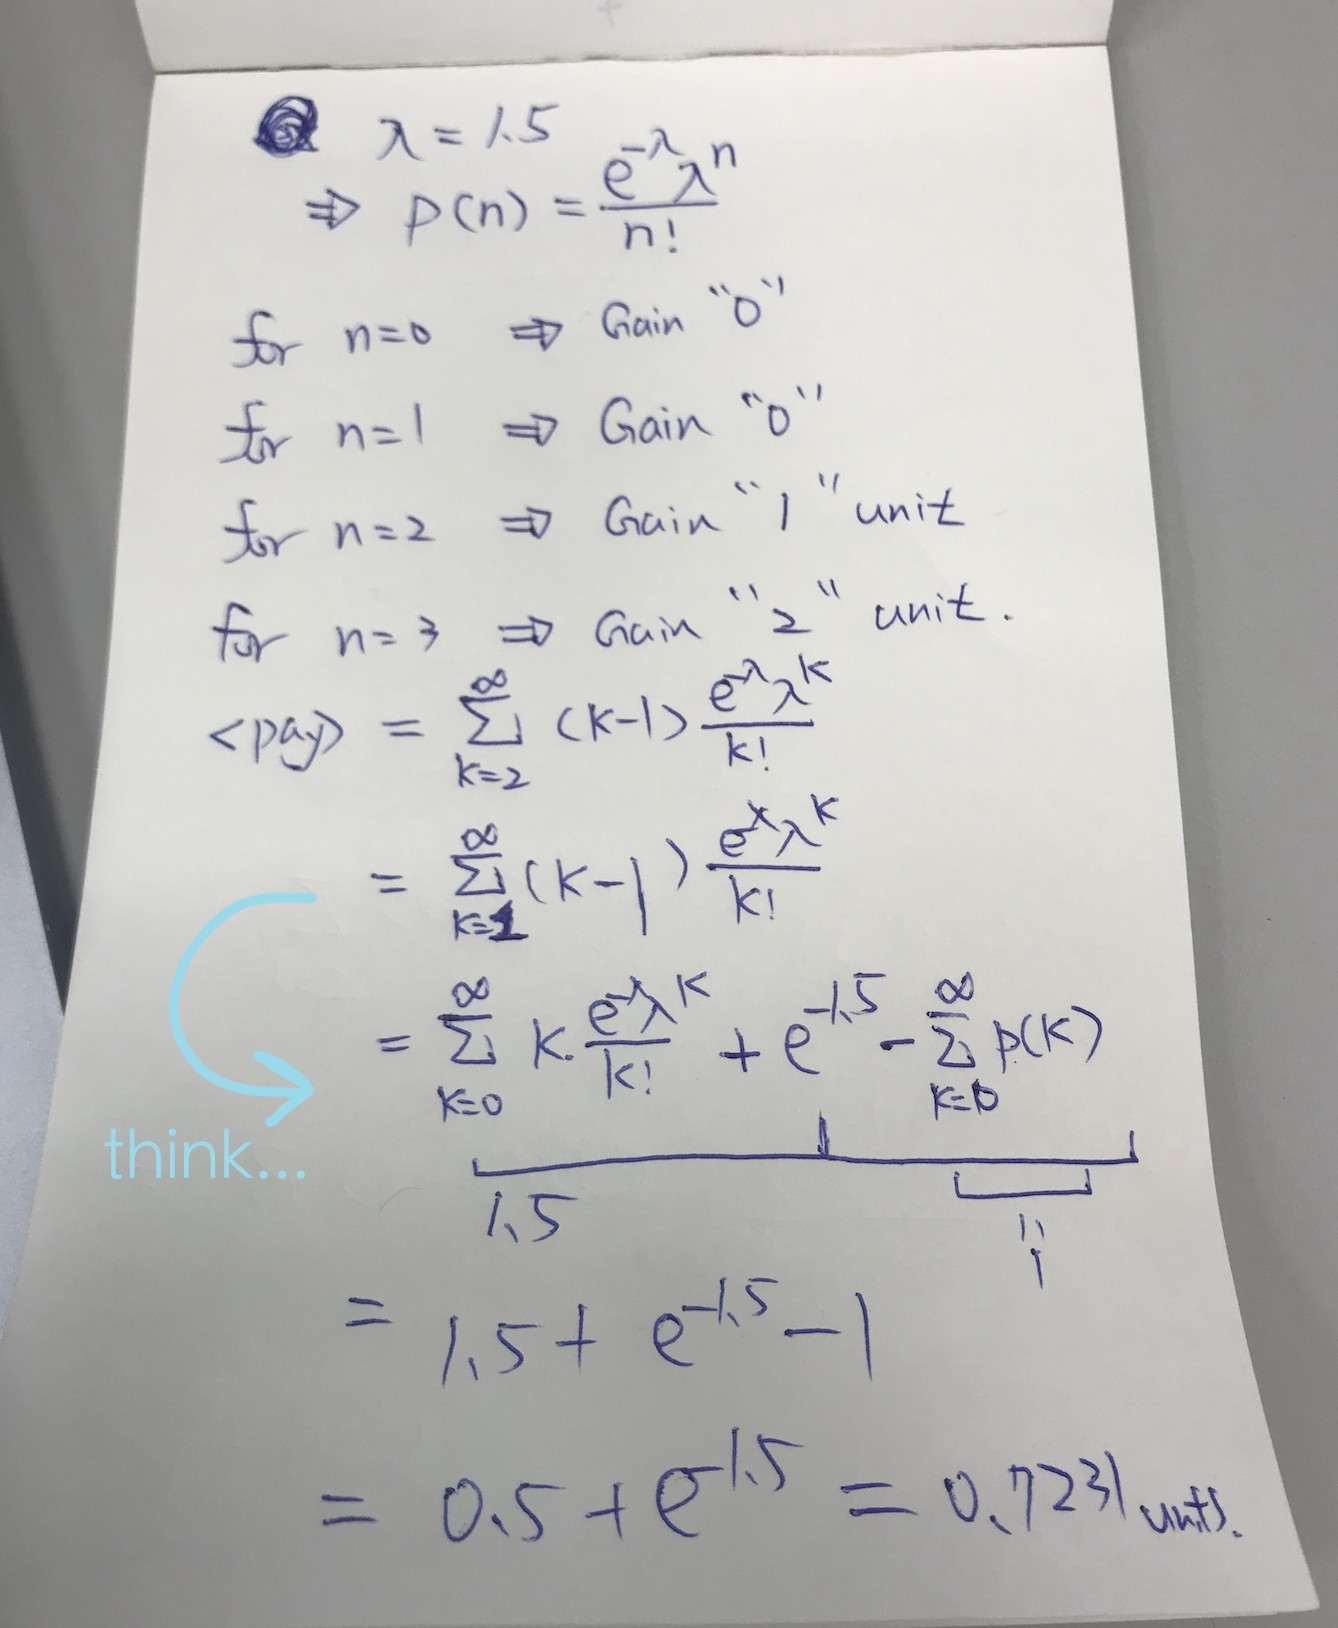 λ = 1.5
⇒ p(n) = e^-λ λ^n / n!
for n=0 ⇒ Gain "0"
for n=1 ⇒ Gain "0"
for n=2 ⇒ Gain "1" unit
for n=3 ⇒ Gain "2" unit.
<pay> = ∑_{k=2}^∞ (k-1) e^-λ λ^k / k!
= ∑_{k=1}^∞ (k-1) e^-λ λ^k / k!
= ∑_{k=0}^∞ k. e^-λ λ^k / k! + e^-1.5 - ∑_{k=0}^∞ p(k)
think...
1.5 1
= 1.5 + e^-1.5 - 1
= 0.5 + e^-1.5 = 0.7231 units.